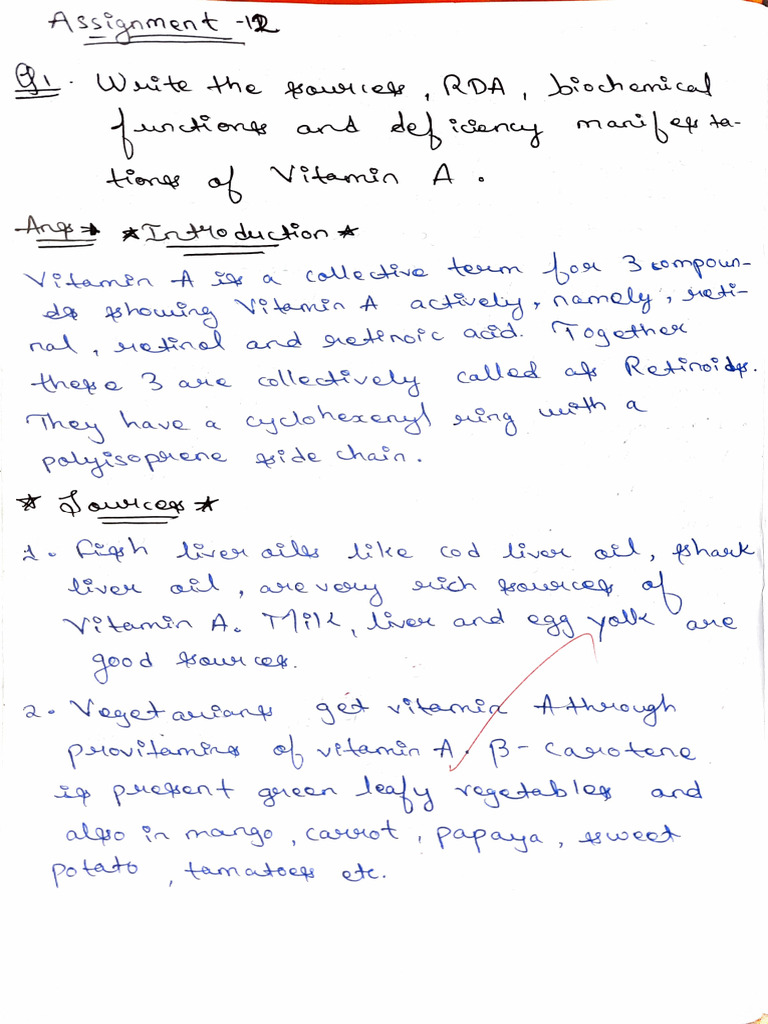 Assignment -12
Q1. Write the sources, RDA, biochemical
functions and deficiency manifesta-
tions of Vitamin A.
Ans → *Introduction*
Vitamin A is a collective term for 3 compoun-
ds showing Vitamin A actively, namely, reti-
nal, retinol and retinoic acid. Together
these 3 are collectively called as Retinoids.
They have a cyclohexenyl ring with a
polyisoprene side chain.
* Sources *
1. Fish liver oils like cod liver oil, shark
liver oil, are very rich sources of
Vitamin A. Milk, liver and egg yolk are
good sources.
2. Vegetarians get vitamin A through
provitamins of vitamin A. β-carotene
is present green leafy vegetables and
also in mango, carrot, papaya, sweet
potato, tamatoes etc.